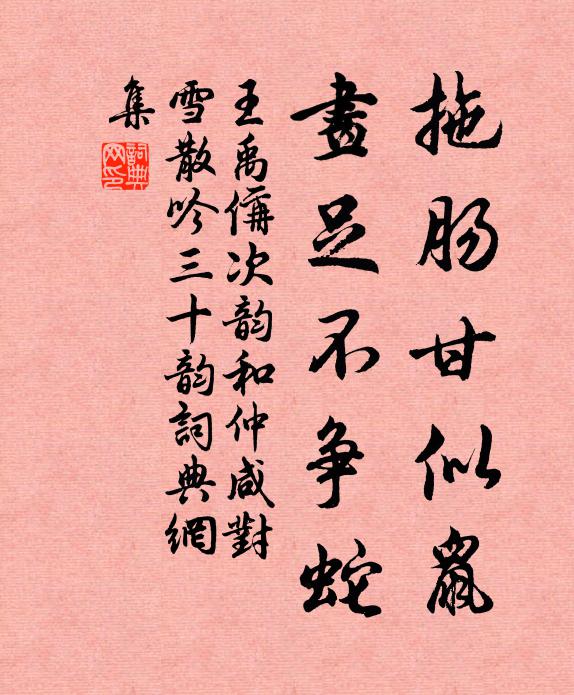 拖肠甘似鼠
畫足不争蛇
王禹偁次韵和仲咸對
雪散吟三十韵詞典網
集
詞典
网印